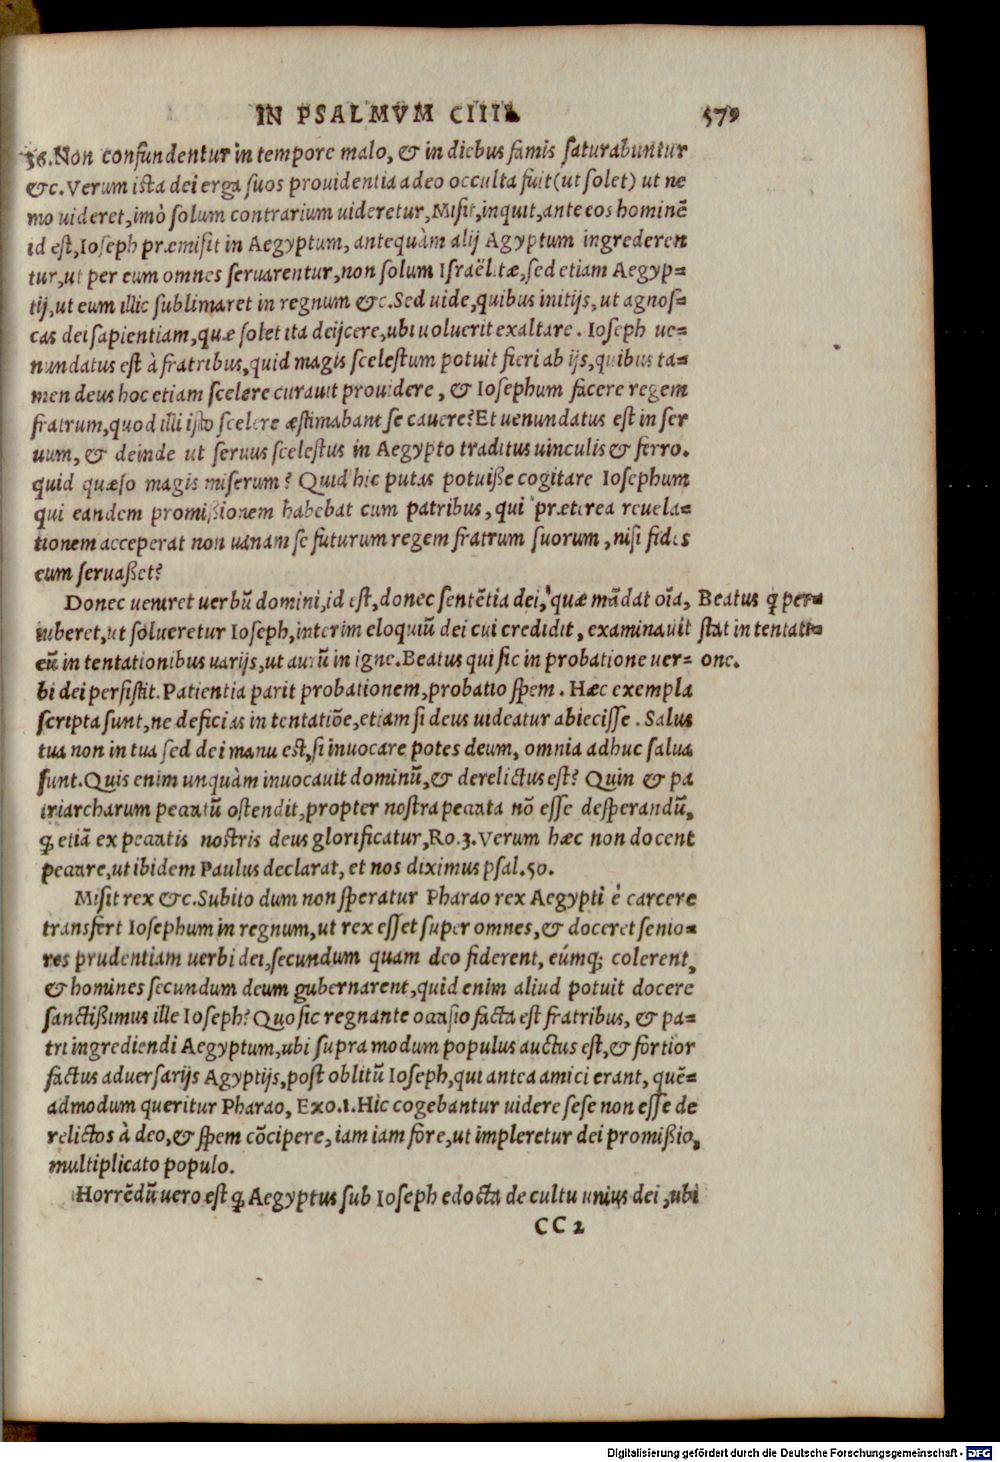 IN PSALMVM CIIII. 579
36. Non confundentur in tempore malo, & in diebus famis saturabuntur
&c. Verum ista dei erga suos prouidentia adeo occulta fuit (ut solet) ut ne
mo uideret, imò solum contrarium uideretur, Misit, inquit, ante eos hominẽ
id est, Ioseph præmisit in Aegyptum, antequàm alij Agyptum ingrederen
tur, ut per eum omnes seruarentur, non solum Israëlitæ, sed etiam Aegyp=
tij, ut eum illic sublimaret in regnum &c. Sed uide, quibus initijs, ut agnos=
cas dei sapientiam, quæ solet ita deijcere, ubi uoluerit exaltare. Ioseph ue=
nundatus est à fratribus, quid magis scelestum potuit fieri ab ijs, quibus ta=
men deus hoc etiam scelere curauit prouidere, & Iosephum facere regem
fratrum, quod illi isto scelere æstimabant se cauere? Et uenundatus est in ser
uum, & deinde ut seruus scelestus in Aegypto traditus uinculis & ferro.
quid quæso magis miserum? Quid hic putas potuiße cogitare Iosephum
qui eandem promißionem habebat cum patribus, qui præterea reuela=
tionem acceperat non uanam se futurum regem fratrum suorum, nisi fides
eum seruaßet?
Donec ueniret uerbũ domini, id est, donec sentẽtia dei, quæ mãdat oĩa,
iuberet, ut solueretur Ioseph, interim eloquiũ dei cui credidit, examinauit
eũ in tentationibus uarijs, ut aurũ in igne. Beatus qui sic in probatione uer=
bi dei persistit. Patientia parit probationem, probatio spem. Hæc exempla
scripta sunt, ne deficias in tentatiõe, etiam si deus uideatur abiecisse. Salus
tua non in tua sed dei manu est, si inuocare potes deum, omnia adhuc salua
sunt. Quis enim unquàm inuocauit dominũ, & derelictus est? Quin & pa
triarcharum peccatũ ostendit, propter nostra peccata nõ esse desperandũ,
ꝙ etiã ex peccatis nostris deus glorificatur, Ro. 3. Verum hæc non docent
peccare, ut ibidem Paulus declarat, et nos diximus psal. 50.
Misit rex &c. Subito dum non speratur Pharao rex Aegypti è carcere
transfert Iosephum in regnum, ut rex esset super omnes, & doceret senio=
res prudentiam uerbi dei, secundum quam deo fiderent, eúmq; colerent,
& homines secundum deum gubernarent, quid enim aliud potuit docere
sanctißimus ille Ioseph? Quo sic regnante occasio facta est fratribus, & pa=
tri ingrediendi Aegyptum, ubi supra modum populus auctus est, & fortior
factus aduersarijs Agyptijs, post oblitũ Ioseph, qui antea amici erant, quẽ=
admodum queritur Pharao, Exo. 1. Hic cogebantur uidere sese non esse de
relictos à deo, & spem cõcipere, iam iam fore, ut impleretur dei promißio,
multiplicato populo.
Horrẽdũ uero est ꝙ Aegyptus sub Ioseph edocta de cultu unius dei, ubi
CC 2
Beatus q per=
stat in tentati=
one.
Digitalisierung gefördert durch die Deutsche Forschungsgemeinschaft - DFG